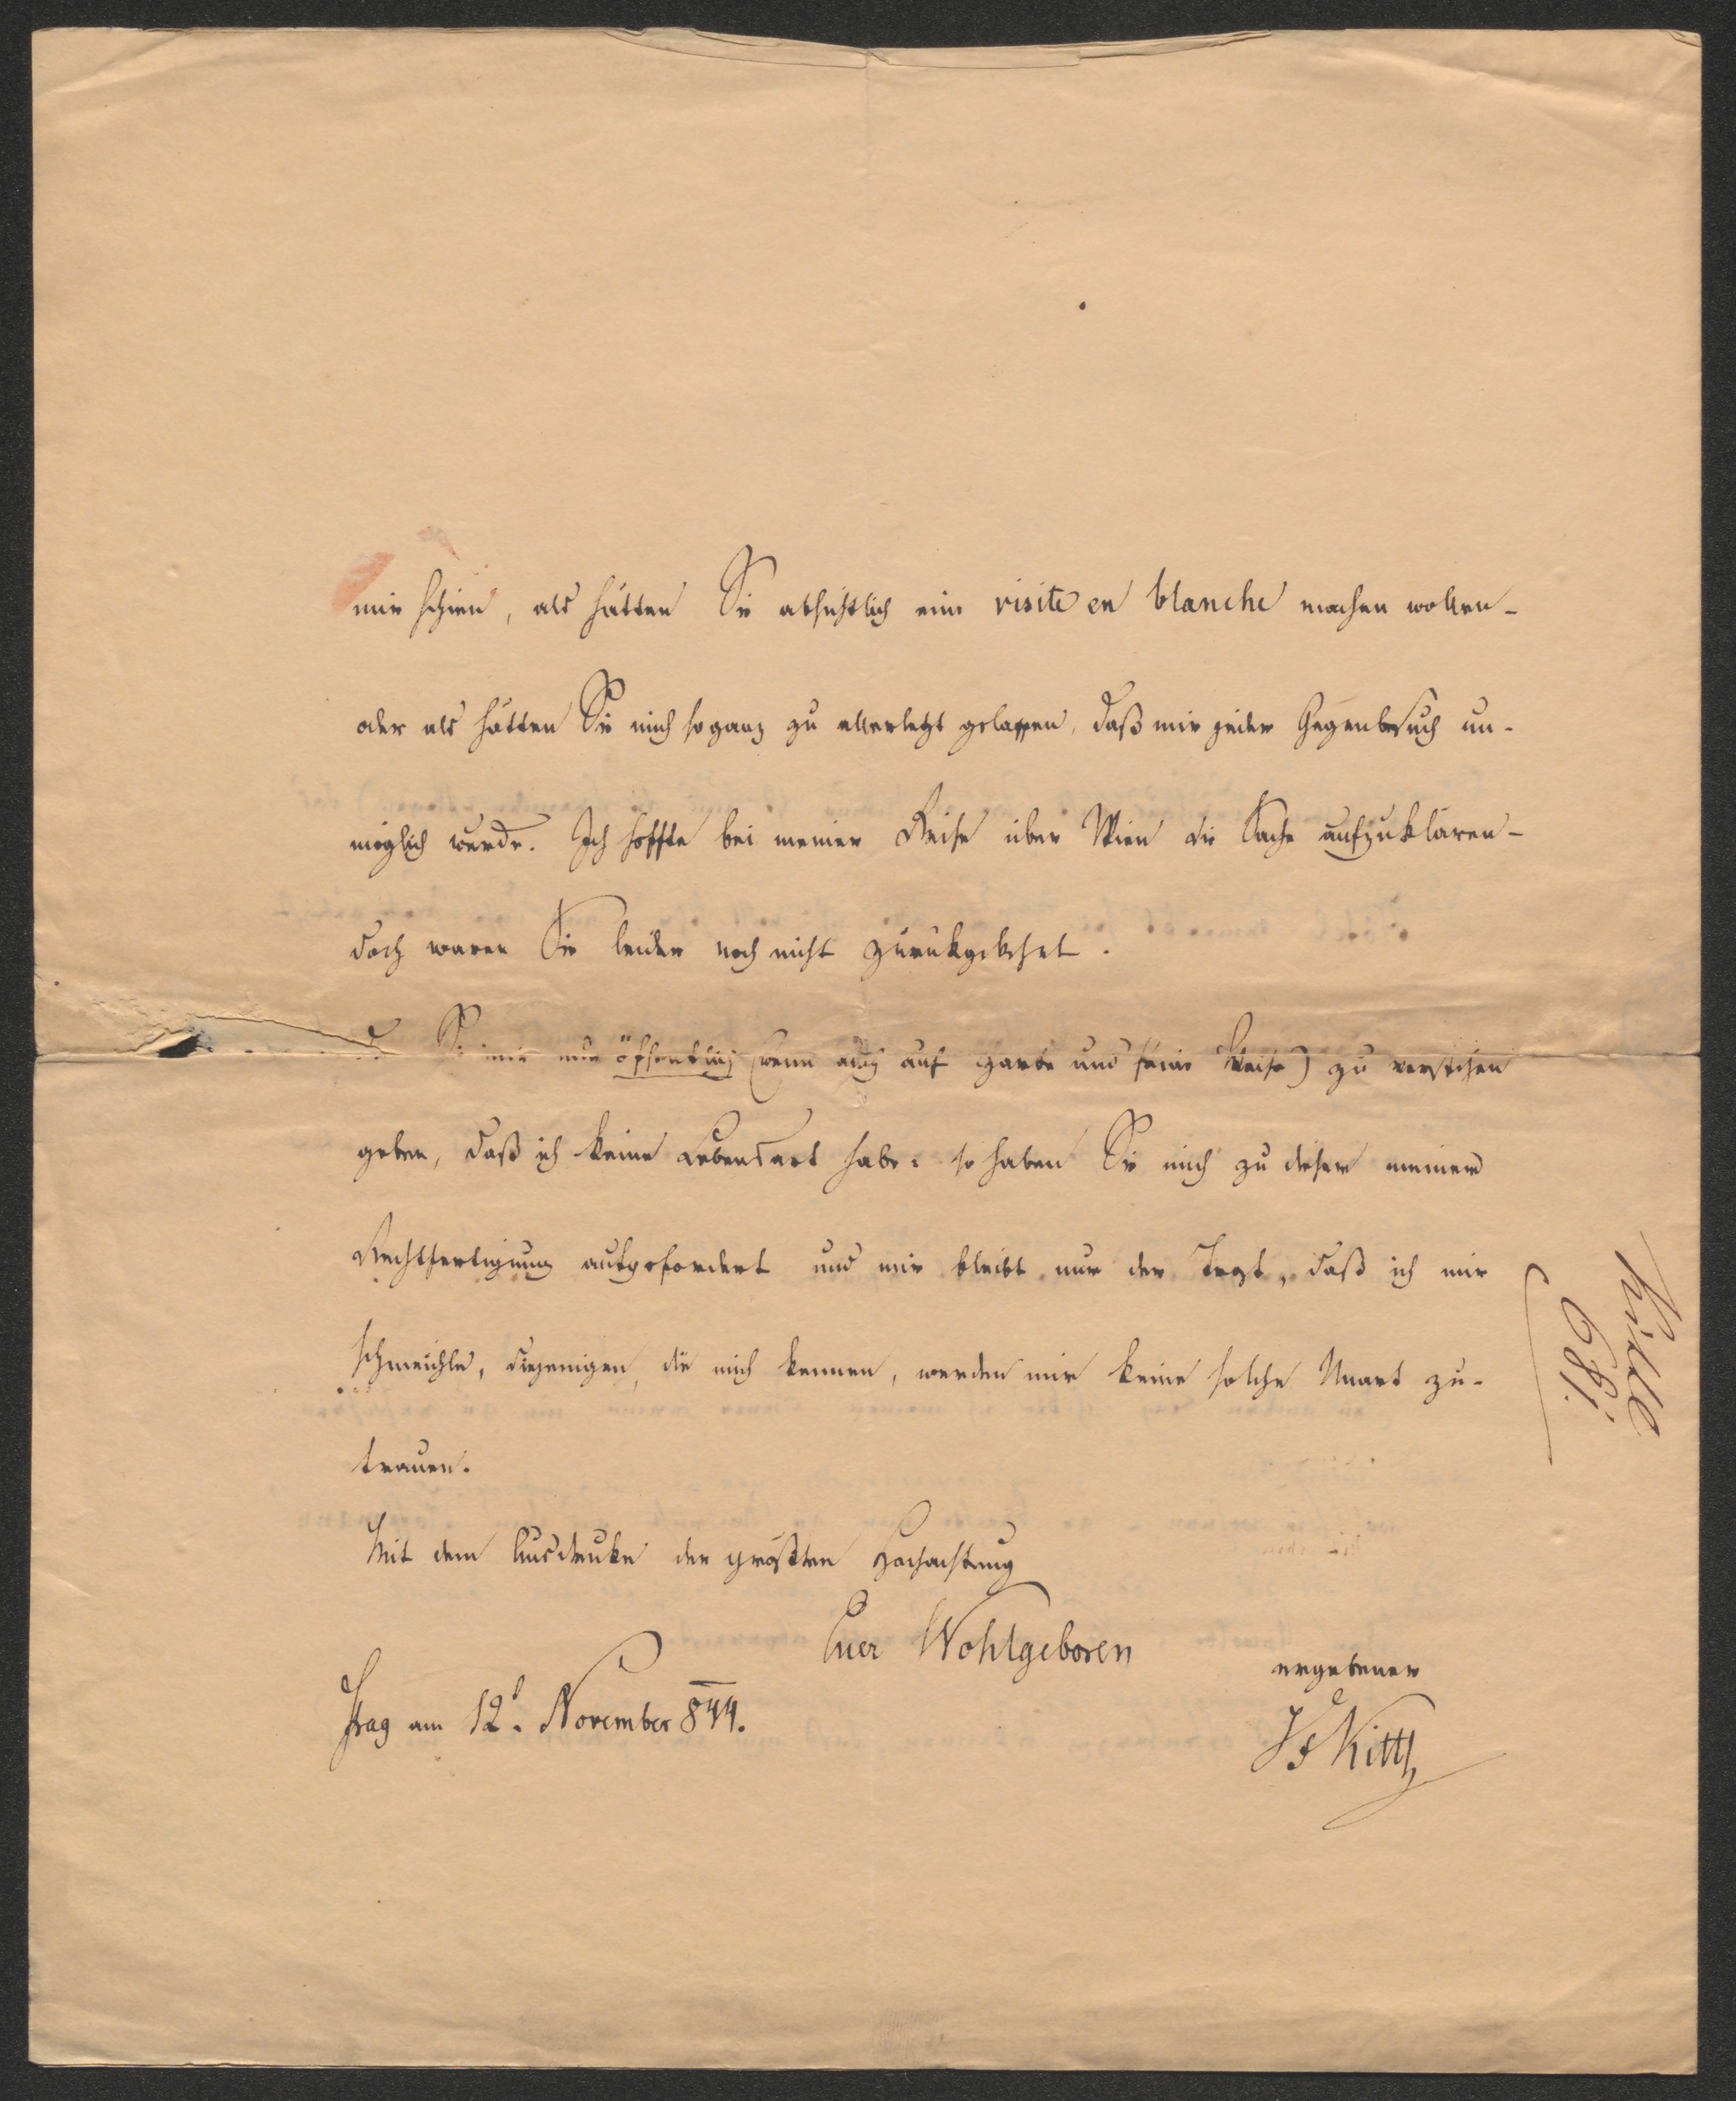 mir schien, als hätten Sie absichtlich eine visite en blanche machen wollen –
oder als hätten Sie mich so ganz zu allerletzt gelassen, daß mir jeder Gegenbesuch un-
möglich wurde. Ich hoffte bei meiner Reise über Wien die Sache aufzuklären –
doch waren Sie leider noch nicht zurükgekehrt.
Sie mir nun öffentlich (wenn auch auf zarte und feine Weise) zu verstehen
geben, daß ich keine Lebensart habe: so haben Sie mich zu dieser meiner
Rechtfertigung aufgefordert und mir bleibt nur der Trost, daß ich mir
schmeichle, diejenigen, die mich kennen, werden mir keine solche Unart zu-
trauen.
Mit dem Ausdruke der größten Hochachtung
Euer Wohlgeboren
ergebener
Prag am 12t. November 844.
JFKittl
Kittl
681.